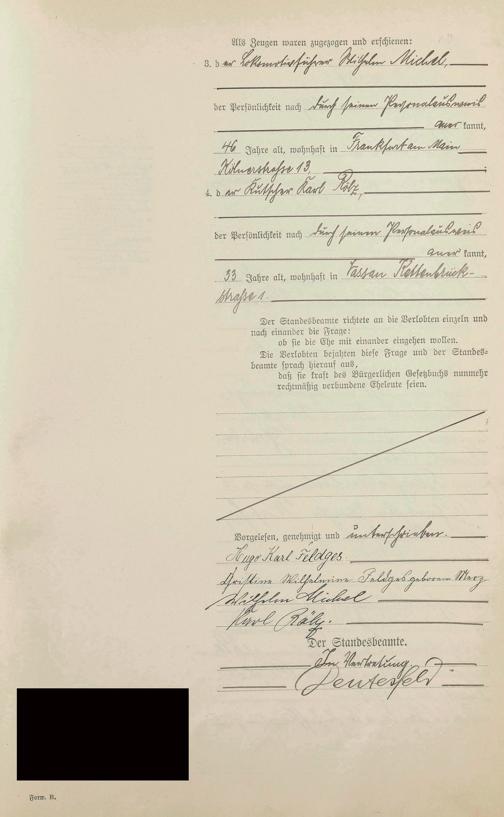 Als Zeugen waren zugezogen und erschienen:
3. der Lokomotivführer Wilhelm Michel,
der Persönlichkeit nach durch seinen Personalausweis
aner kannt,
46 Jahre alt, wohnhaft in Frankfurt am Main
Kölnerstrasse 13,
4. der Kutscher Karl
der Persönlichkeit nach durch seinen Personalausweis
aner kannt,
33 Jahre alt, wohnhaft in Nassau Kettenbrück-
straße 1.
Der Standesbeamte richtete an die Verlobten einzeln und
nach einander die Frage:
ob sie die Ehe mit einander eingehen wollen.
Die Verlobten bejahten diese Frage und der Standes-
beamte sprach hierauf aus,
daß sie kraft des Bürgerlichen Gesetzbuchs nunmehr
rechtmäßig verbundene Eheleute seien.
Vorgelesen, genehmigt und unterschrieben.
Hugo Karl Feldges
Christine Wilhelmine Feldges geborene Merz
Wilhelm Michel
Karl
Der Standesbeamte.
In Vertretung
Form. B.